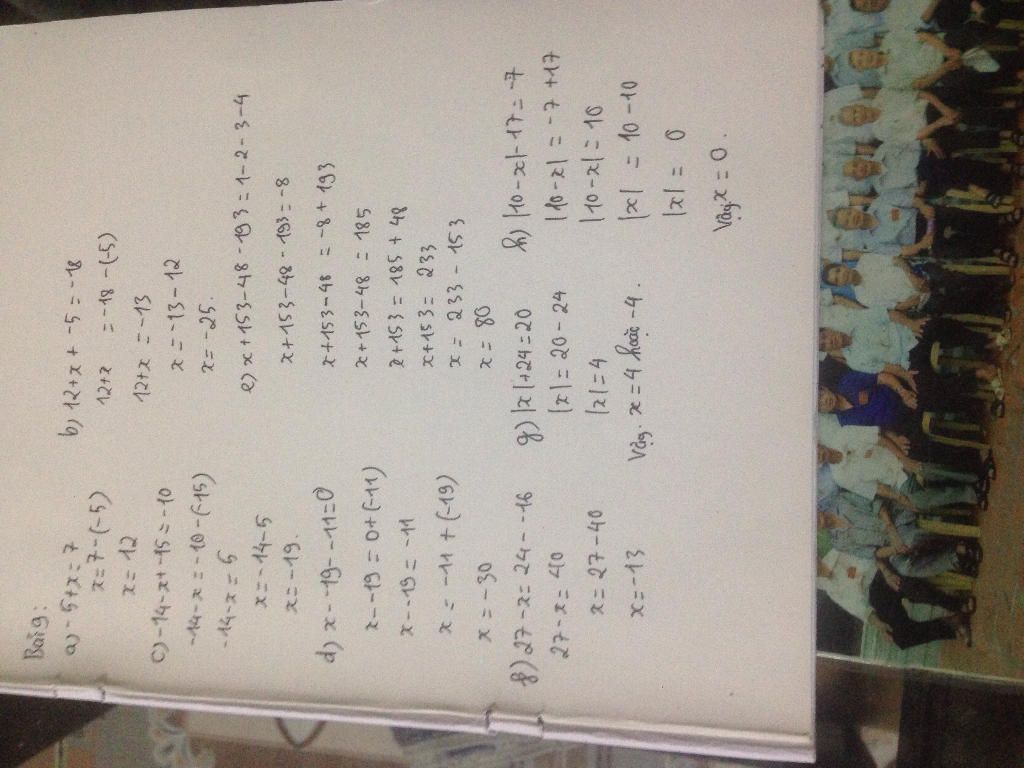 Bài 9:
a) -5+x=7
x=7-(-5)
x=12
b) 12+x+-5=-18
12+x =-18-(-5)
12+x=-13
x=-13-12
x=-25.
c) -14-x+-15=-10
-14-x=-10-(-15)
-14-x=5
x=-14-5
x=-19.
d) x--19--11=0
x--19=0+(-11)
x--19=-11
x=-11+(-19)
x=-30
e) x+153-48-193=1-2-3-4
x+153-48-193=-8
x+153-48=-8+193
x+153-48=185
x+153=185+48
x+153=233
x=233-153
x=80
f) 27-x=24--16
27-x=40
x=27-40
x=-13
g) |x|+24=20
|x|=20-24
|x|=4
Vậy. x=4 hoặc -4.
h) |10-x|-17=-7
|10-x|=-7+17
|10-x|=10
|x| =10-10
|x|= 0
Vậy x=0.